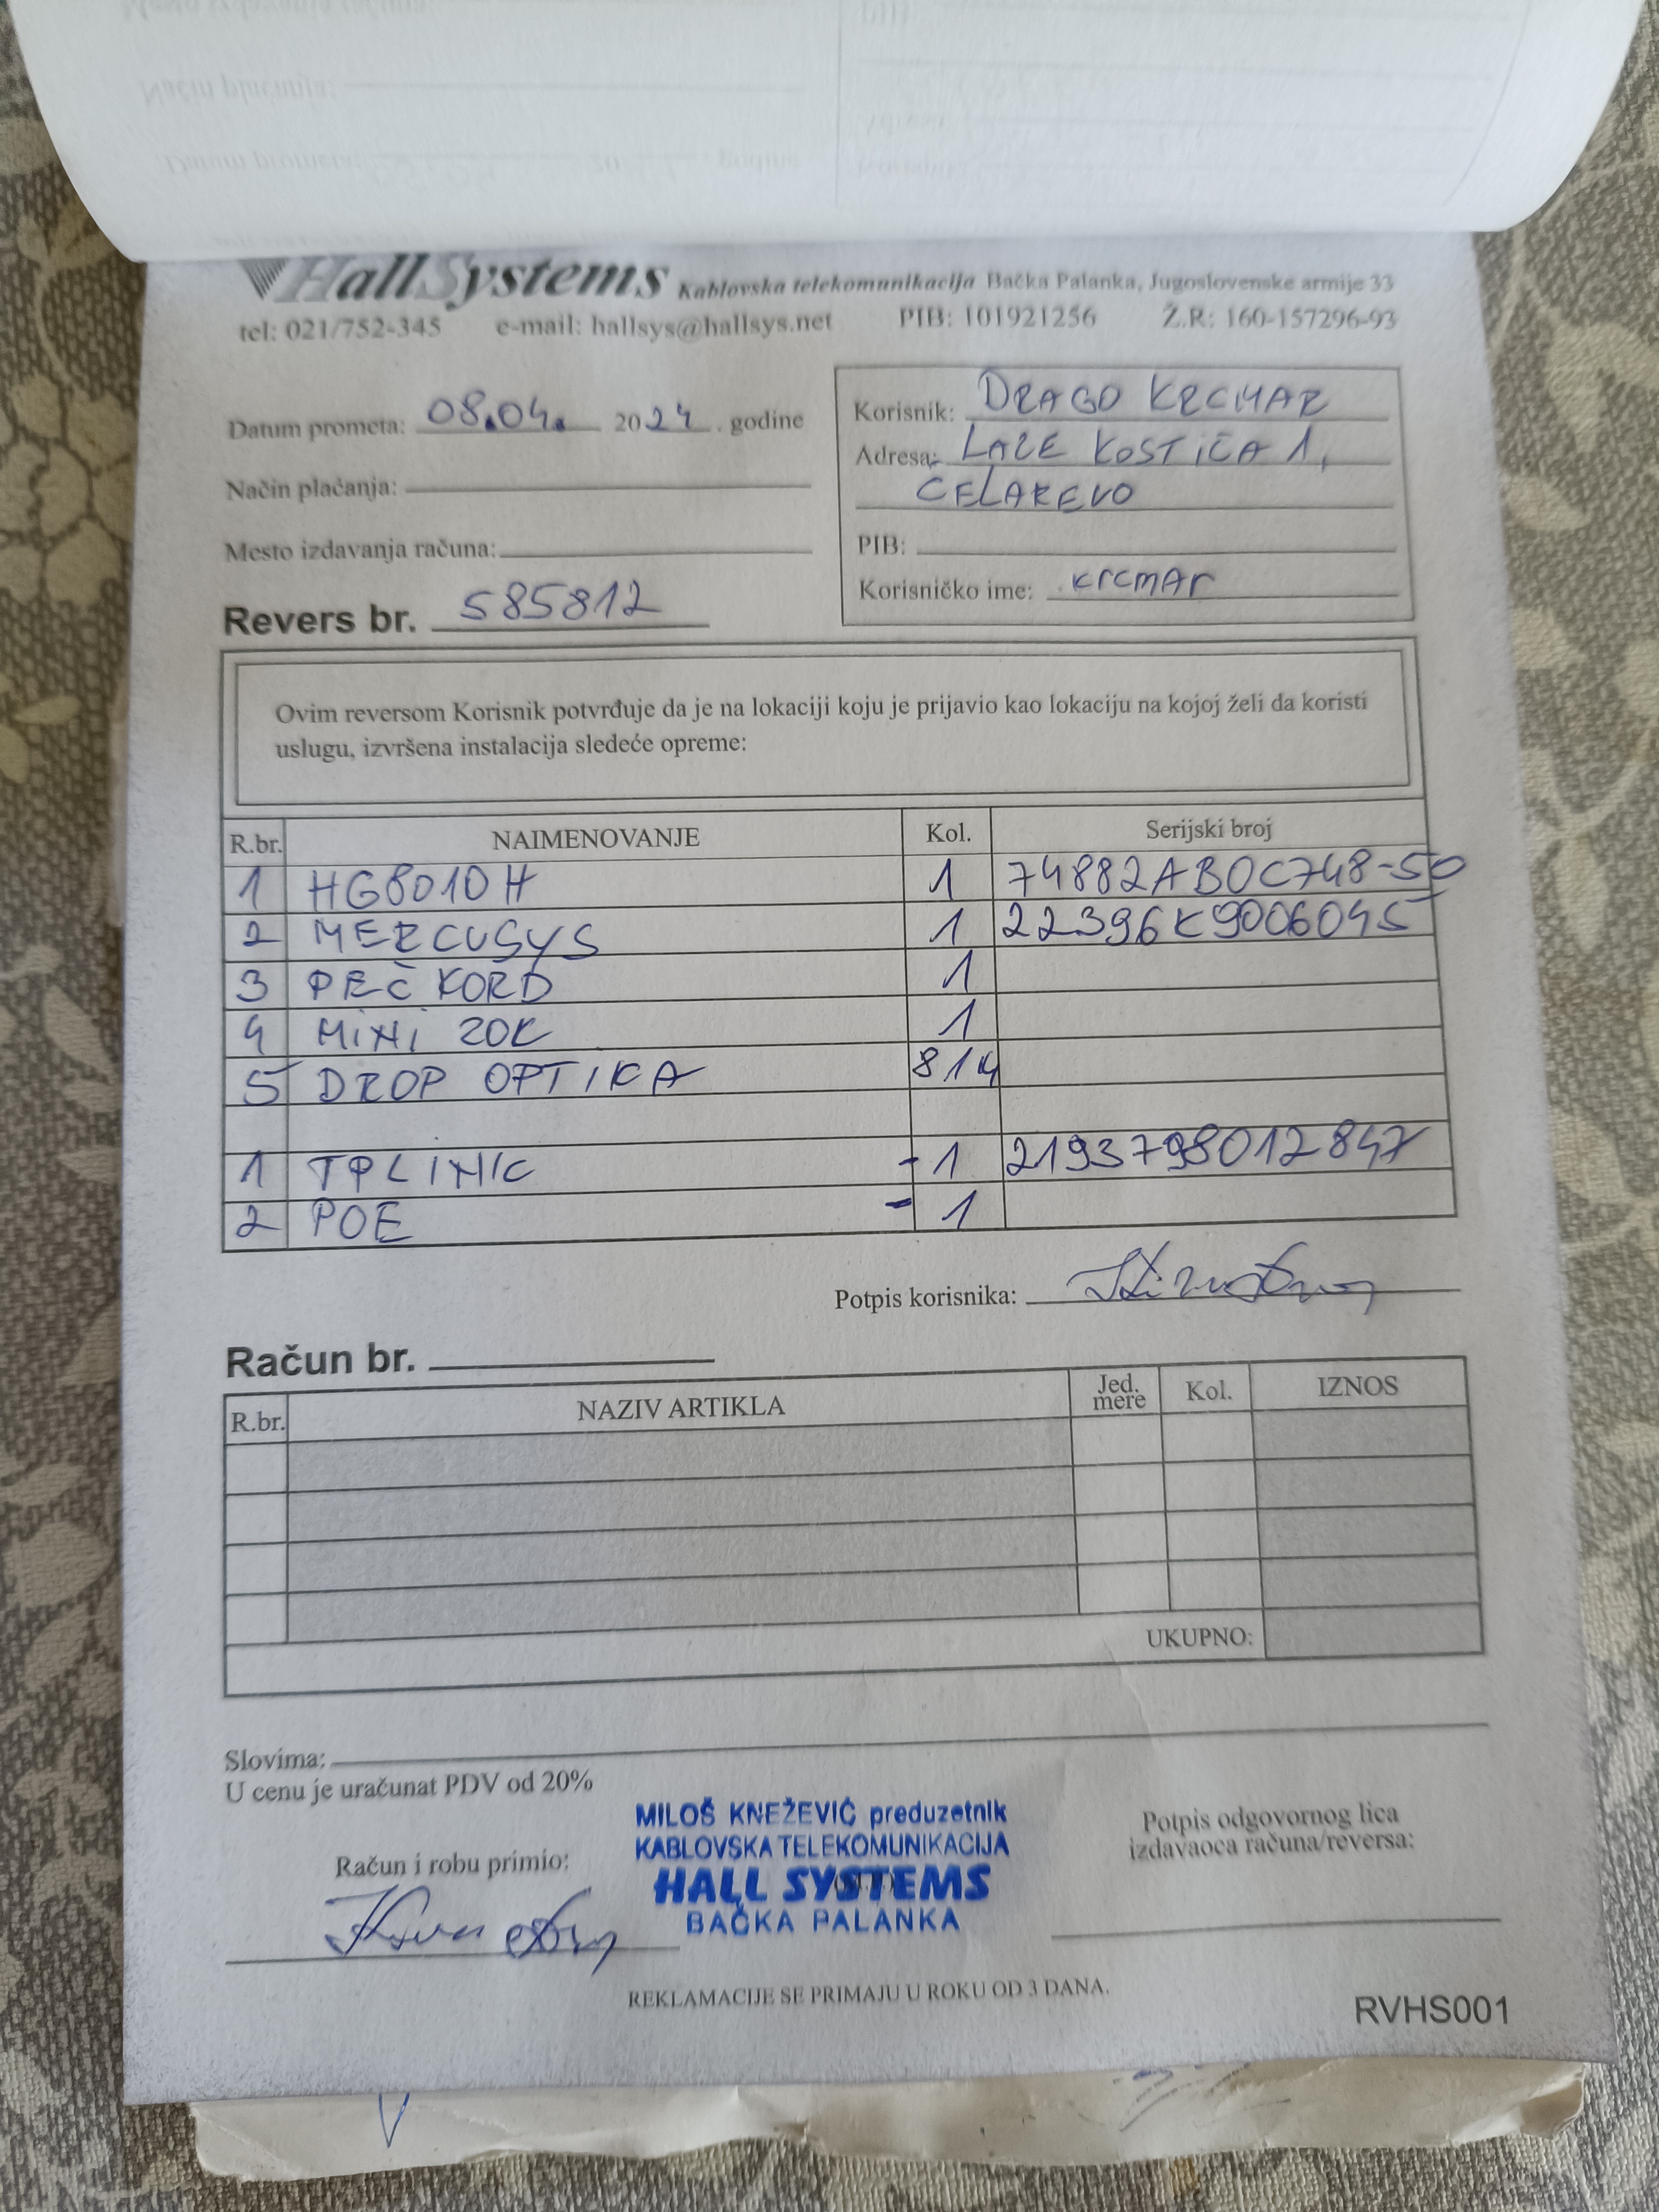 HallSystems Kablovska telekomunikacija Bačka Palanka, Jugoslovenske armije 33
tel: 021/752-345 e-mail: hallsys@hallsys.net PIB: 101921256 Ž.R: 160-157296-93
Datum prometa: 08.04. 2024. godine
Način plaćanja:
Mesto izdavanja računa:
Revers br. 585812
Korisnik: DRAGO KRCMAR
Adresa: LAZE KOSTIĆA 1,
ČELAREVO
PIB:
Korisničko ime: krcmar
Ovim reversom Korisnik potvrđuje da je na lokaciji koju je prijavio kao lokaciju na kojoj želi da koristi
uslugu, izvršena instalacija sledeće opreme:
R.br. NAIMENOVANJE Kol. Serijski broj
1 HG8010H 1 74882AB0C748-50
2 MERCUSYS 1 22396K9006045
3 PEČ KORD 1
4 MINI ZOK 1
5 DROP OPTIKA 814
1 TPLINK -1 2193798012847
2 POE -1
Potpis korisnika:
Račun br.
R.br. NAZIV ARTIKLA Jed. mere Kol. IZNOS
UKUPNO:
Slovima:
U cenu je uračunat PDV od 20%
Račun i robu primio:
MILOŠ KNEŽEVIĆ preduzetnik
KABLOVSKA TELEKOMUNIKACIJA
HALL SYSTEMS
BAČKA PALANKA
Potpis odgovornog lica
izdavaoca računa/reversa:
REKLAMACIJE SE PRIMAJU U ROKU OD 3 DANA.
RVHS001